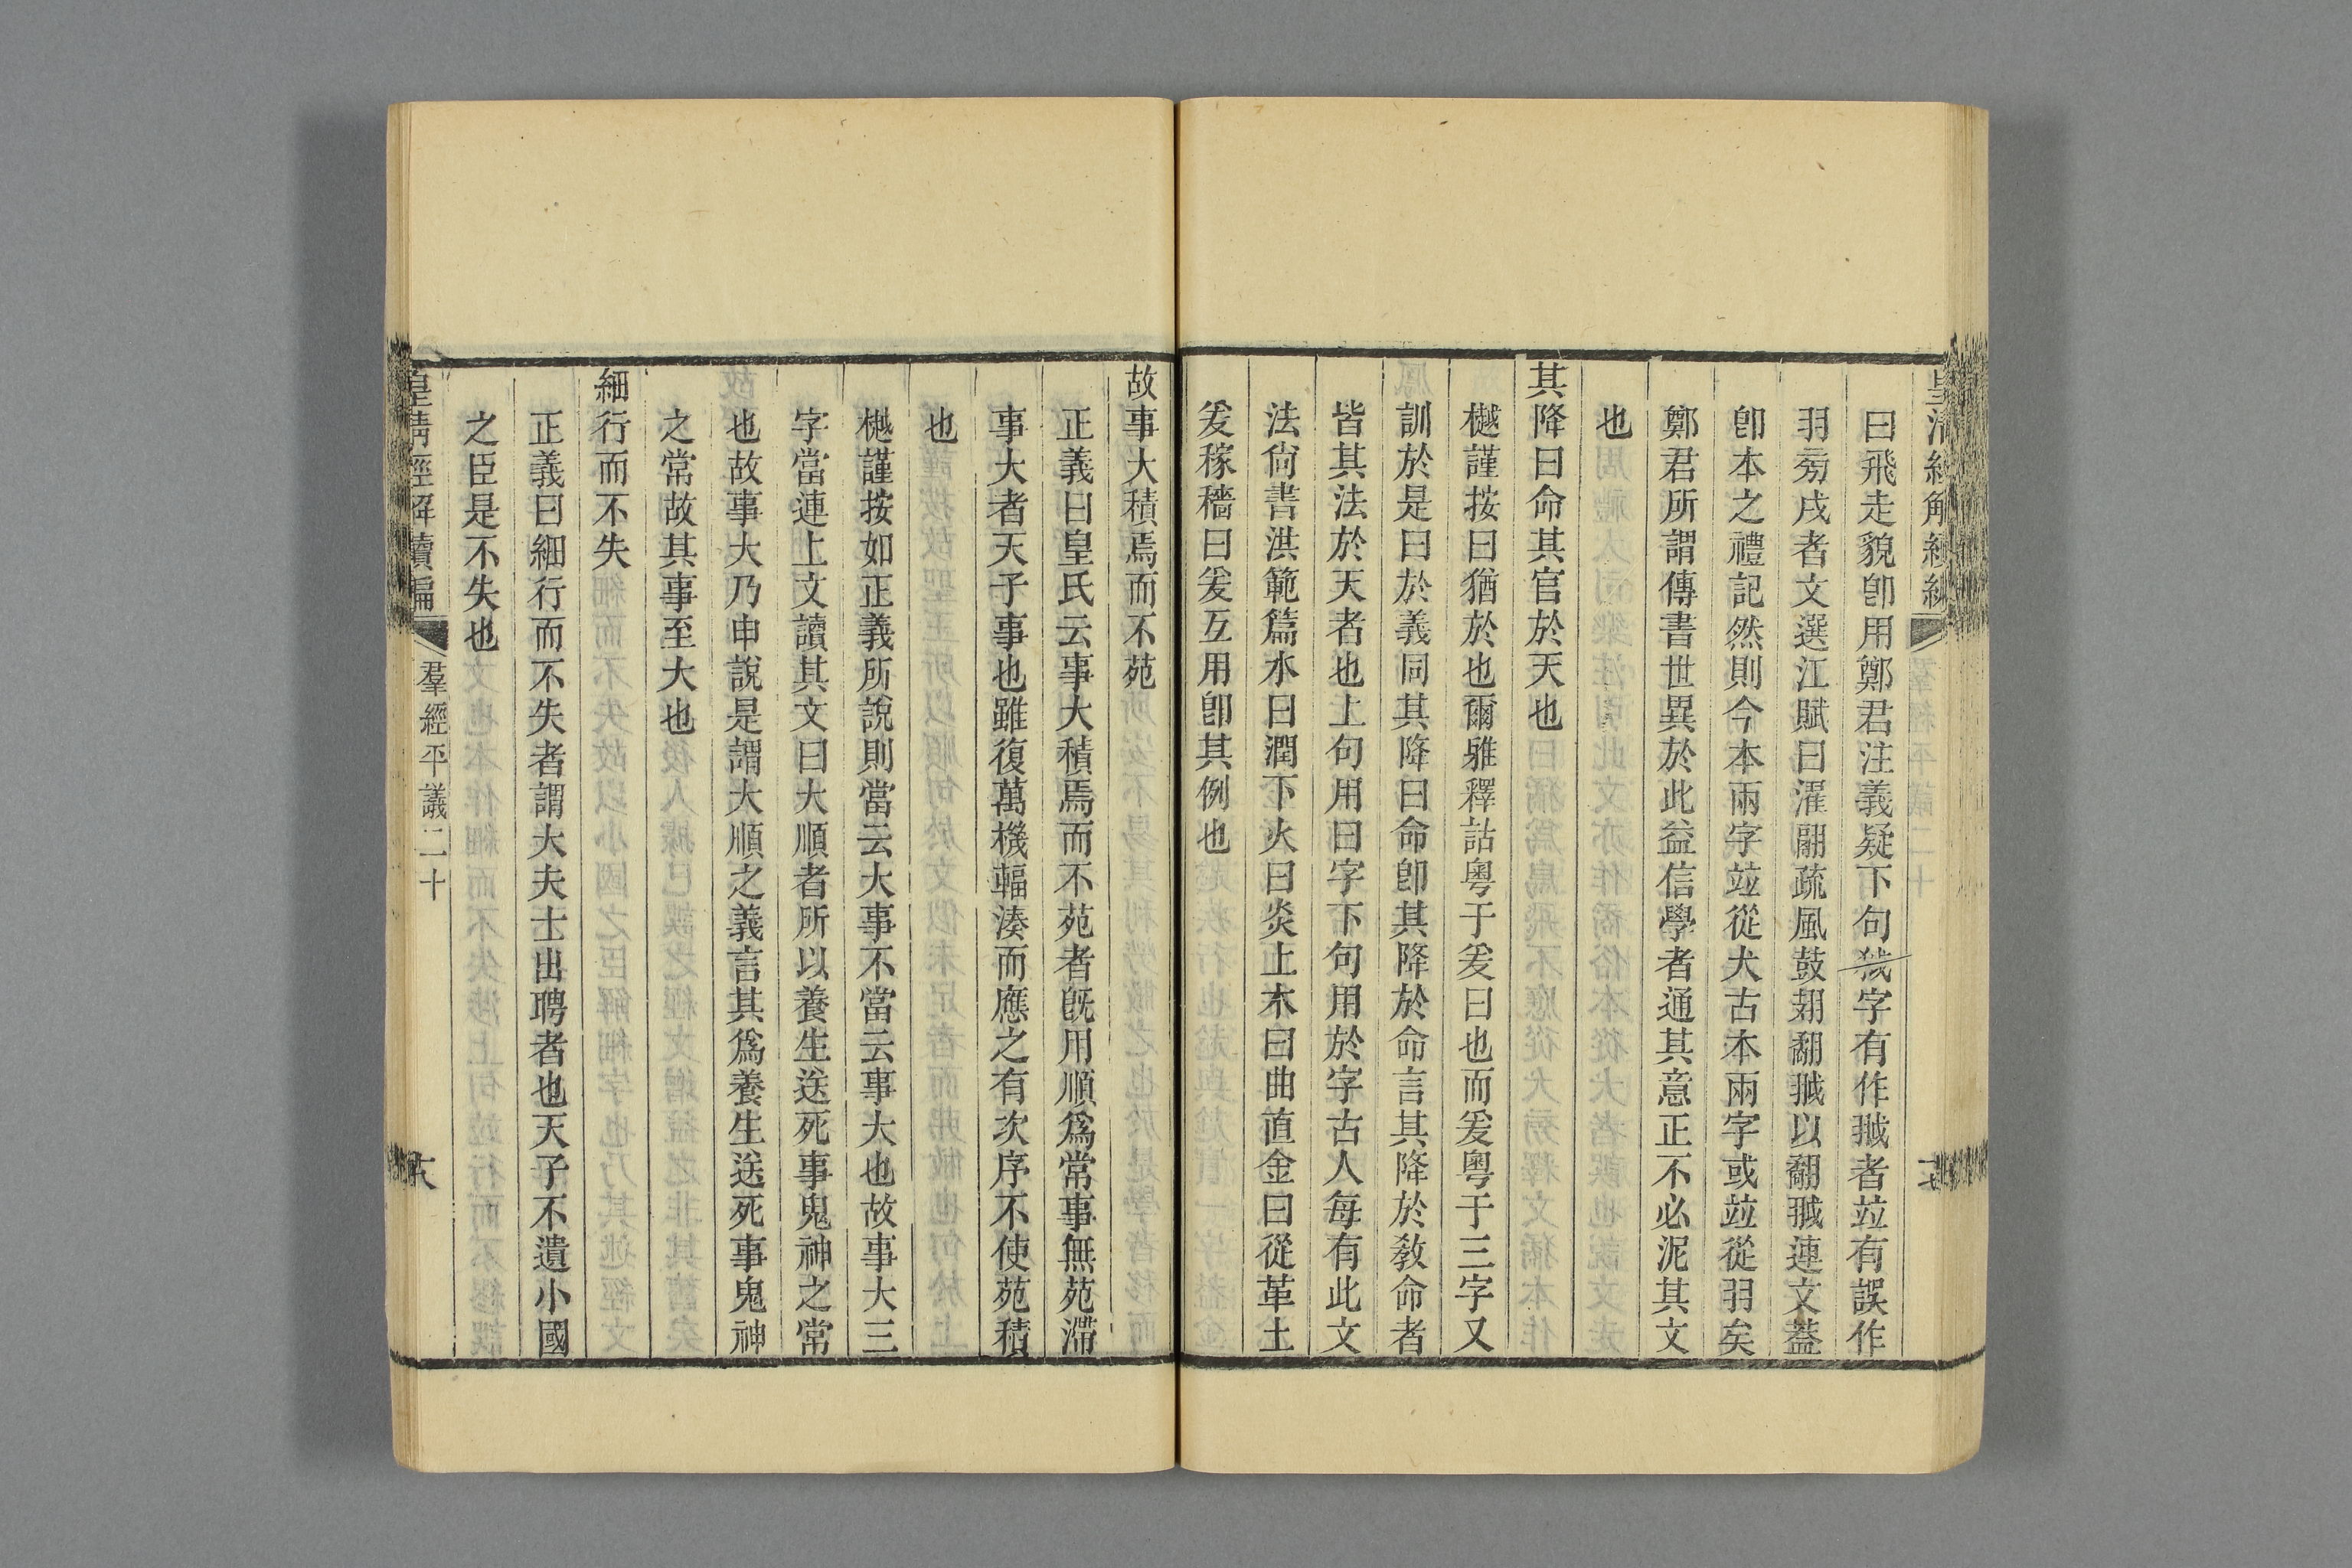 曰飛走貌卽用鄭君注義疑下句狘字有作𦐍者竝有誤作
羽旁戌者文選江賦曰濯翮疏風鼓翅翻𦑣以翻𦑣連文葢
卽本之禮記然則今本兩字竝從犬古本兩字或竝從羽矣
鄭君所謂傳書世異於此益信學者通其意正不必泥其文
也
其降曰命其官於天也
樾謹按曰猶於也爾雅釋詁粵于爰曰也而爰粵于三字又
訓於是曰於義同其降曰命卽其降於命言其降於敎命者
皆其法於天者也上句用曰字下句用於字古人每有此文
法尙書洪範篇水曰潤下火曰炎上木曰曲直金曰從革土
爰稼穡曰爰互用卽其例也
故事大積焉而不苑
正義曰皇氏云事大積焉而不苑者旣用順爲常事無苑滯
事大者天子事也雖復萬機輻湊而應之有次序不使苑積
也
樾謹按如正義所說則當云大事不當云事大也故事大三
字當連上文讀其文曰大順者所以養生送死事鬼神之常
也故事大乃申說是謂大順之義言其爲養生送死事鬼神
之常故其事至大也
細行而不失
正義曰細行而不失者謂大夫士出聘者也天子不遺小國
之臣是不失也
皇清經解續編
羣經平議二十